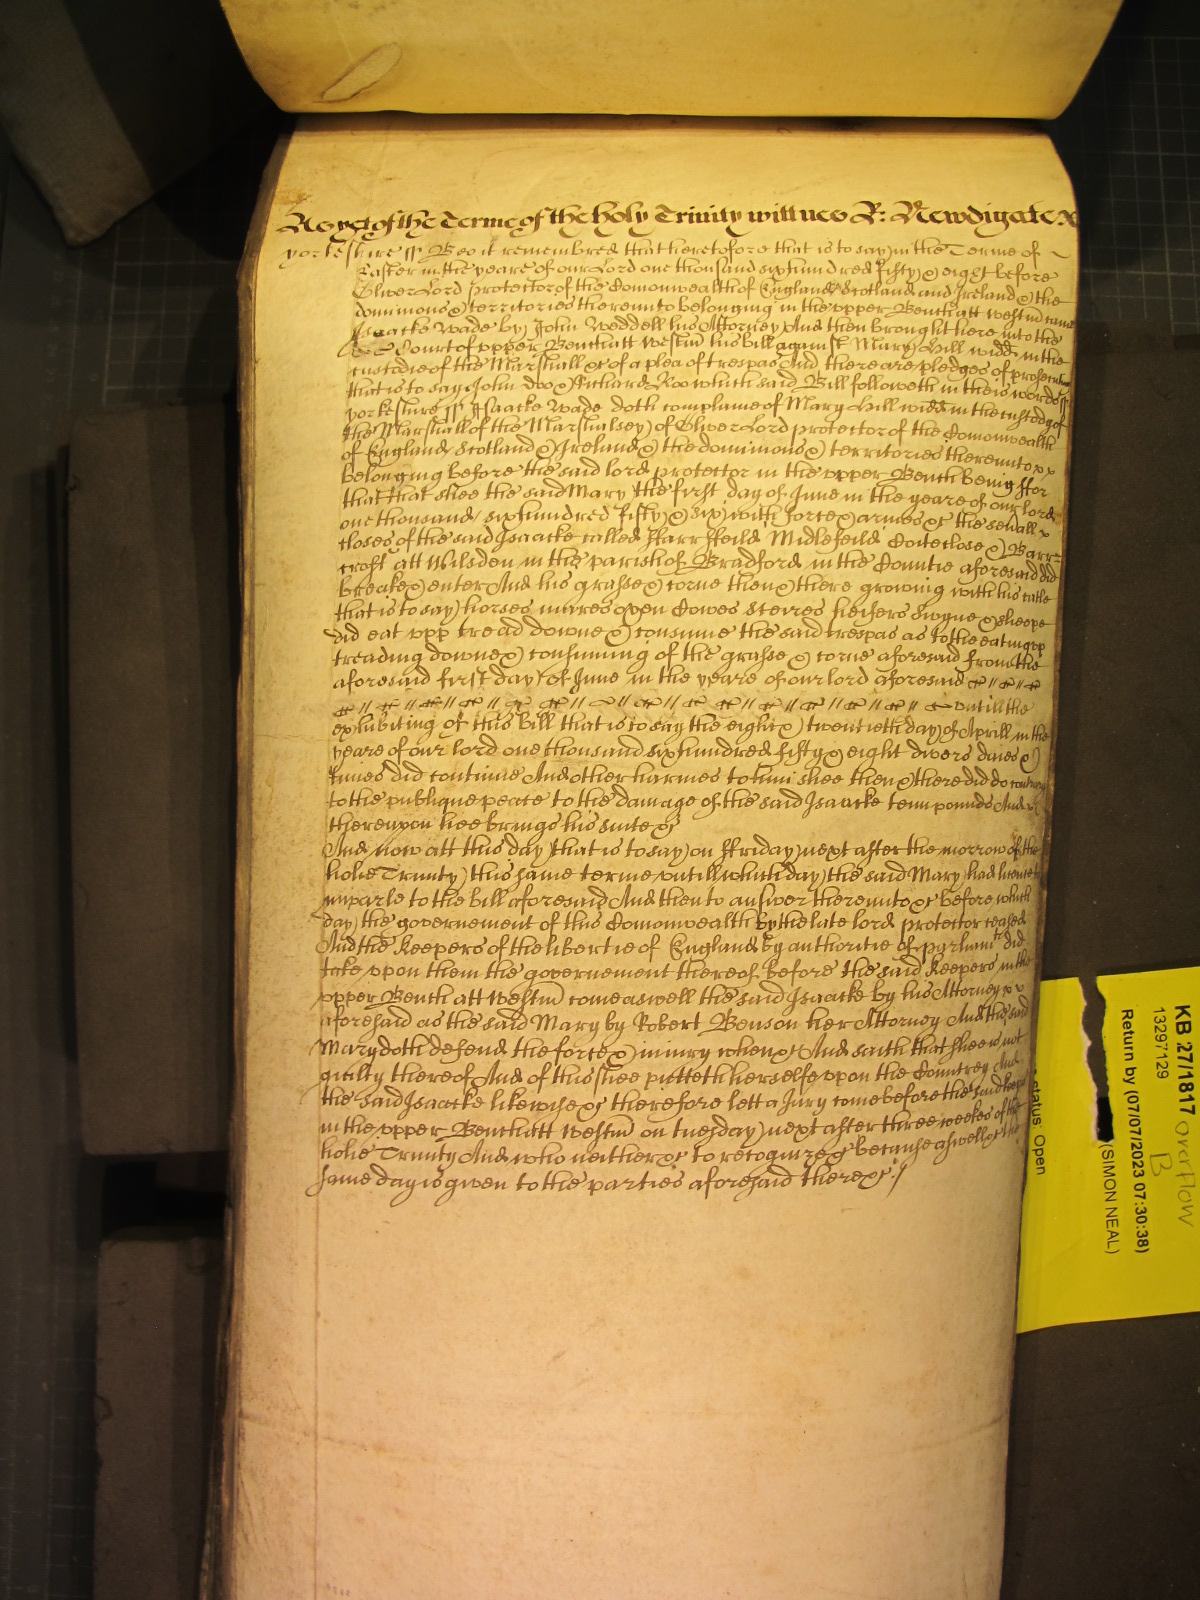 As yet of the Terme of the holy Trinity wittnes R: Newdigate
yorkeshire ss Bee it remembred that heretofore that is to say in the Terme of
Easter in the yeare of our Lord one thousand six hundred fifty & eight before
Oliver Lord protector of the Comonwealth of England Scotland and Ireland & the
dominions & territories thereunto belonging in the upper Bench att Westm came
Isaacke Wade by John Weddell his Attorney And then brought here into the
Court of upper Bench att Westm his bill against Mary Hill widd in the
custodie of the Marshall &c of a plea of trespas And there are pledges of prosecution
that is to say John doo & Richard Roo which said Bill followeth in theis words ss
yorkeshire ss Isaacke Wade doth complaine of Mary Hill widd in the custody of
the Marshall of the Marshalsey of Oliver Lord protector of the Comonwealth
of England Scotland & Ireland & the dominions & territories thereunto
belonging before the said lord protector in the upper Bench being ffor
that that shee the said Mary the first day of June in the yeare of our lord
one thousand six hundred fifty & six with force & armes &c the severall
closes of the said Isaacke called ffarr ffeild Midlefeild Coiteclose & Barr
croft att Wilsden in the parish of Bradford in the Countie aforesaid did
breake & enter And his grasse & corne then & there growing with his catle
that is to say horses mares oxen Cowes steeres heifers swyne & sheepe
did eat upp tread downe & consume the said trespas as to the eating up
treading downe & consuming of the grasse & corne aforesaid from the
aforesaid first day of June in the yeare of our lord aforesaid
untill the
exhibiting of this bill that is to say the eight & twentieth day of Aprill in the
yeare of our lord one thousand six hundred fifty & eight divers daies &
times did continue And other harmes to him shee then & there did do contrary
to the publique peace to the damage of the said Isaacke tenn pounds And
thereupon hee brings his suite &c
And now att this day that is to say on ffriday next after the morrow of the
holie Trinity this same terme untill which day the said Mary had licence
imparle to the bill aforesaid And then to answer thereunto &c before which
day the governement of this Comonwealth by the late lord protector ceased
And the Keepers of the libertie of England by authoritie of parliamt did
take upon them the governement thereof before the said Keepers in the
upper Bench att Westm come aswell the said Isaacke by his Attorney
aforesaid as the said Mary by Robert Benson her Attorney And the said
Mary doth defend the force & iniury when &c And saith that shee is not
guilty thereof And of this shee putteth herselfe upon the Countrey And
the said Isaacke likewise &c therefore lett a Jury come before the said keepers
in the upper Bench att Westm on tuesday next after three weekes of the
holie Trinity And who neither &c to recognize &c because aswell &c the
same day is given to the parties aforesaid there &c
KB 27/1817 overflow
B
13297129
Return by (07/07/2023 07:30:38)
(SIMON NEAL)
status: Open